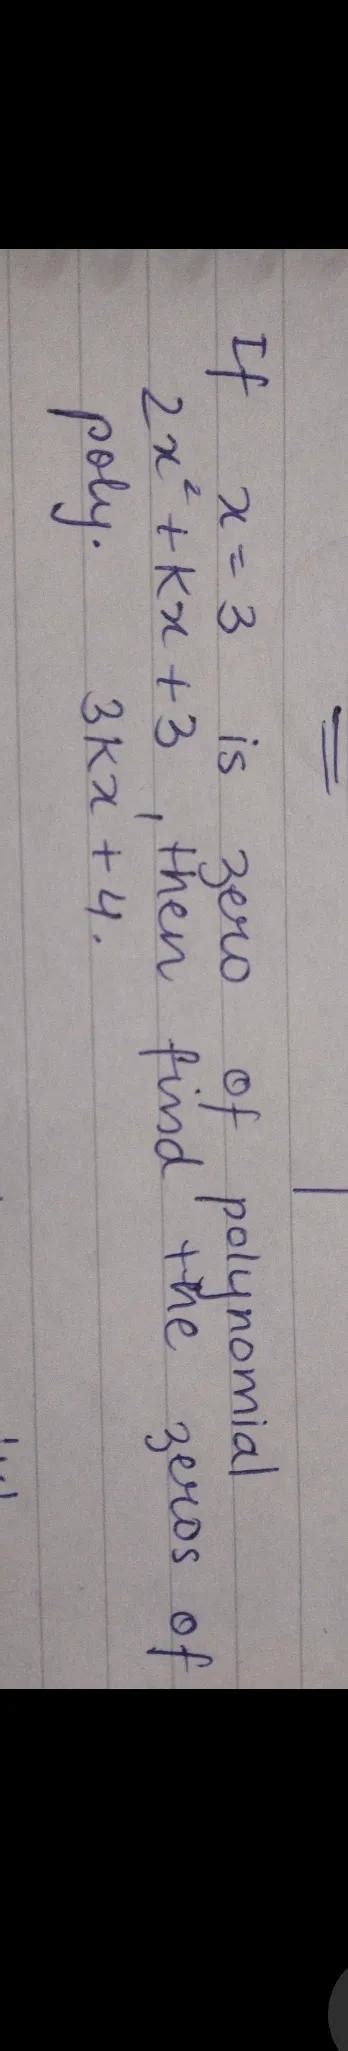 If x = 3 is zero of polynomial
2x² + kx + 3, then find the zeros of
poly. 3kx + 4.